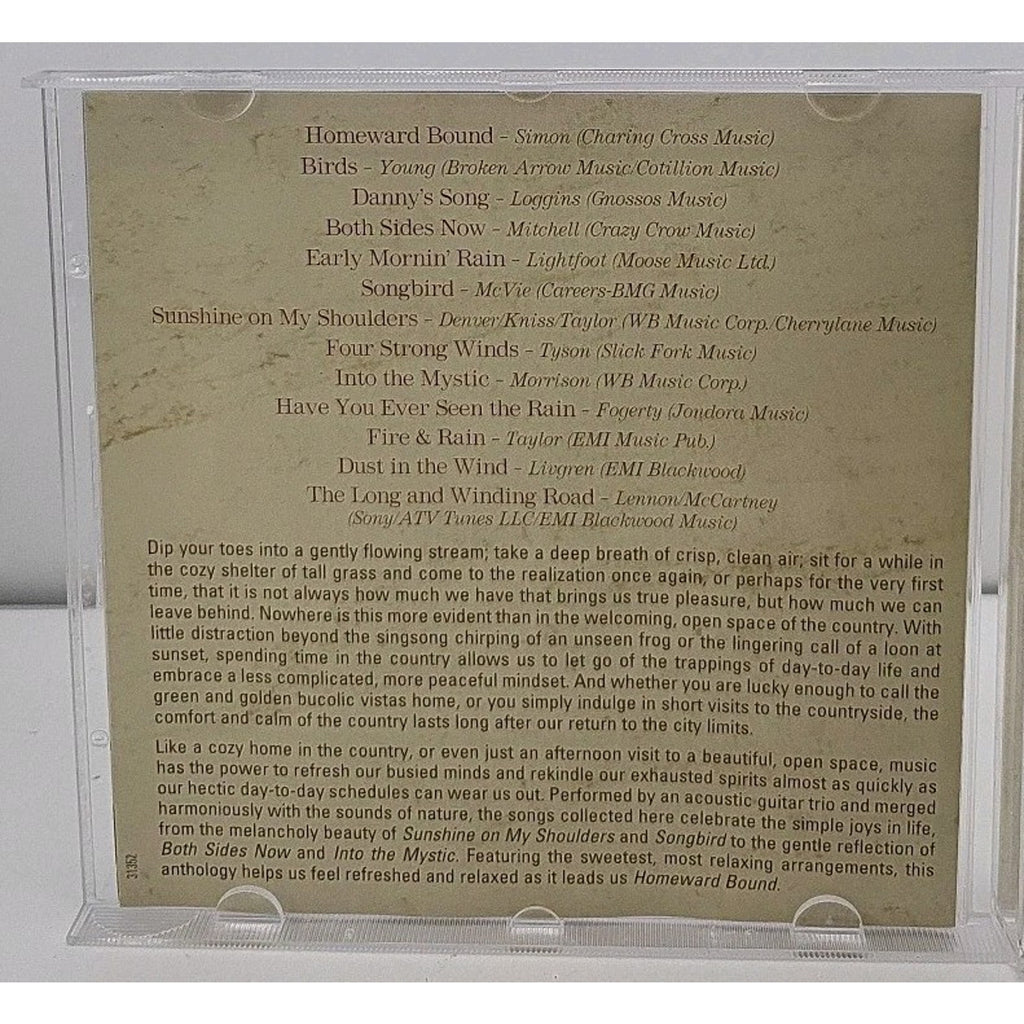 Homeward Bound – Simon (Charing Cross Music)
Birds – Young (Broken Arrow Music/Cotillion Music)
Danny's Song – Loggins (Gnossos Music)
Both Sides Now – Mitchell (Crazy Crow Music)
Early Mornin' Rain – Lightfoot (Moose Music Ltd.)
Songbird – McVie (Careers-BMG Music)
Sunshine on My Shoulders – Denver/Kniss/Taylor (WB Music Corp./Cherrylane Music)
Four Strong Winds – Tyson (Slick Fork Music)
Into the Mystic – Morrison (WB Music Corp.)
Have You Ever Seen the Rain – Fogerty (Jondora Music)
Fire & Rain – Taylor (EMI Music Pub.)
Dust in the Wind – Livgren (EMI Blackwood)
The Long and Winding Road – Lennon/McCartney
(Sony/ATV Tunes LLC/EMI Blackwood Music)
Dip your toes into a gently flowing stream; take a deep breath of crisp, clean air; sit for a while in
the cozy shelter of tall grass and come to the realization once again, or perhaps for the very first
time, that it is not always how much we have that brings us true pleasure, but how much we can
leave behind. Nowhere is this more evident than in the welcoming, open space of the country. With
little distraction beyond the singsong chirping of an unseen frog or the lingering call of a loon at
sunset, spending time in the country allows us to let go of the trappings of day-to-day life and
embrace a less complicated, more peaceful mindset. And whether you are lucky enough to call the
green and golden bucolic vistas home, or you simply indulge in short visits to the countryside, the
comfort and calm of the country lasts long after our return to the city limits.
Like a cozy home in the country, or even just an afternoon visit to a beautiful, open space, music
has the power to refresh our busied minds and rekindle our exhausted spirits almost as quickly as
our hectic day-to-day schedules can wear us out. Performed by an acoustic guitar trio and merged
harmoniously with the sounds of nature, the songs collected here celebrate the simple joys in life,
from the melancholy beauty of Sunshine on My Shoulders and Songbird to the gentle reflection of
Both Sides Now and Into the Mystic. Featuring the sweetest, most relaxing arrangements, this
anthology helps us feel refreshed and relaxed as it leads us Homeward Bound.
31352